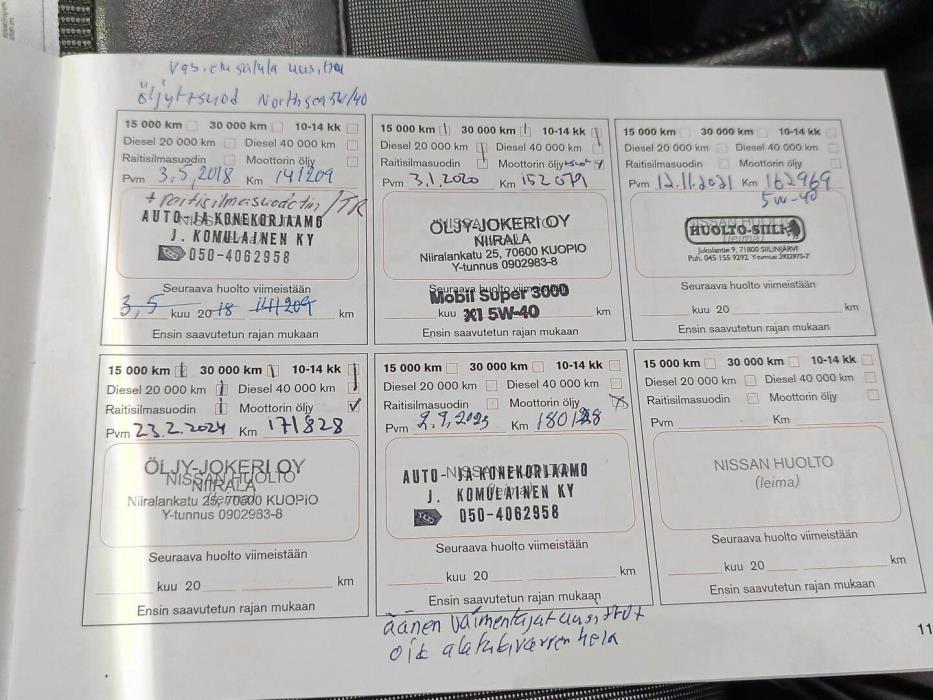 öljyt+suod Northsea 5W/40
15 000 km 30 000 km 10-14 kk
Diesel 20 000 km Diesel 40 000 km
Raitisilmasuodin Moottorin öljy
Pvm 3.5.2018 Km 141209
+ raitisilmasuodatin/TR
NISSAN HUOLTO
AUTO- JA KONEKORJAAMO
J. KOMULAINEN KY
050-4062958
Seuraava huolto viimeistään
3,5 kuu 20 18 141209 km
Ensin saavutetun rajan mukaan
15 000 km 30 000 km 10-14 kk
Diesel 20 000 km Diesel 40 000 km
Raitisilmasuodin Moottorin öljy
Pvm 3.1.2020 Km 152079
NISSAN HUOLTO
ÖLJY-JOKERI OY
NIIRALA
Niiralankatu 25, 70600 KUOPIO
Y-tunnus 0902983-8
Seuraava huolto viimeistään
Mobil Super 3000
kuu X1 5W-40 km
Ensin saavutetun rajan mukaan
15 000 km 30 000 km 10-14 kk
Diesel 20 000 km Diesel 40 000 km
Raitisilmasuodin Moottorin öljy
Pvm 12.11.2021 Km 162969
5W-40
NISSAN HUOLTO
HUOLTO-SIILI
(leima)
Jukolantie 9, 71800 SIILINJÄRVI
Puh. 045 155 9292 Y-tunnus 2922975-7
Seuraava huolto viimeistään
kuu 20 km
Ensin saavutetun rajan mukaan
15 000 km 30 000 km 10-14 kk
Diesel 20 000 km Diesel 40 000 km
Raitisilmasuodin Moottorin öljy
Pvm 23.2.2024 Km 171828
ÖLJY-JOKERI OY
NISSAN HUOLTO
NIIRALA
(leima)
Niiralankatu 25, 70600 KUOPIO
Y-tunnus 0902983-8
Seuraava huolto viimeistään
kuu 20 km
Ensin saavutetun rajan mukaan
15 000 km 30 000 km 10-14 kk
Diesel 20 000 km Diesel 40 000 km
Raitisilmasuodin Moottorin öljy
Pvm Km
NISSAN HUOLTO
AUTO- JA KONEKORJAAMO
(leima)
J. KOMULAINEN KY
050-4062958
Seuraava huolto viimeistään
kuu 20 km
Ensin saavutetun rajan mukaan
äänen vaimentajat uusittu+
oik alatukivarren hela
15 000 km 30 000 km 10-14 kk
Diesel 20 000 km Diesel 40 000 km
Raitisilmasuodin Moottorin öljy
Pvm Km
NISSAN HUOLTO
(leima)
Seuraava huolto viimeistään
kuu 20 km
Ensin saavutetun rajan mukaan
11